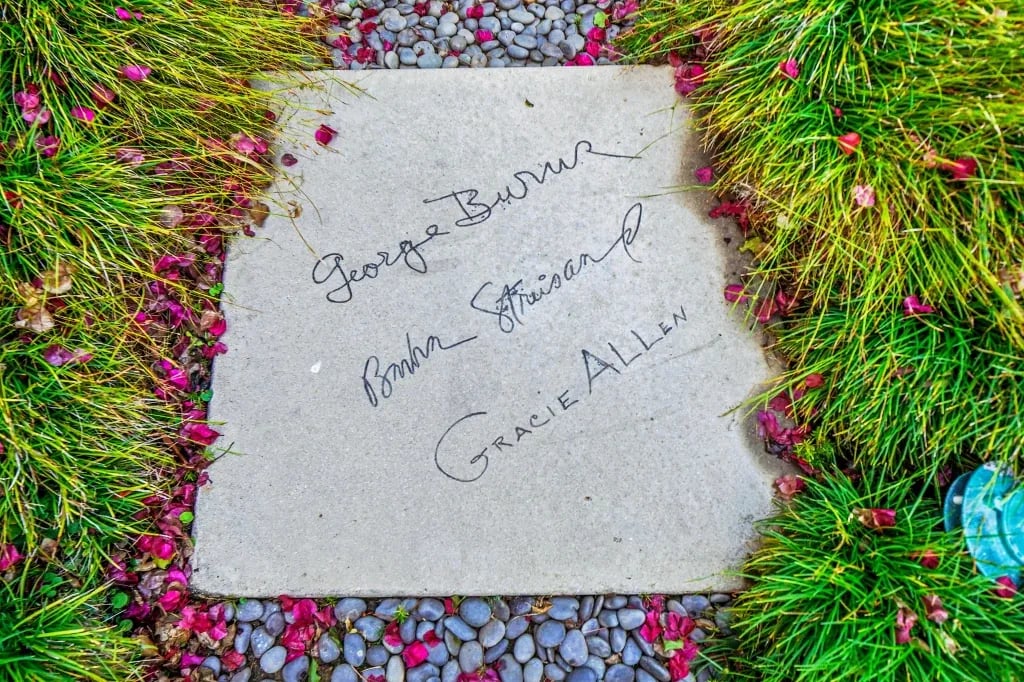 George Burns
Barbra Streisand
GRACIE ALLEN